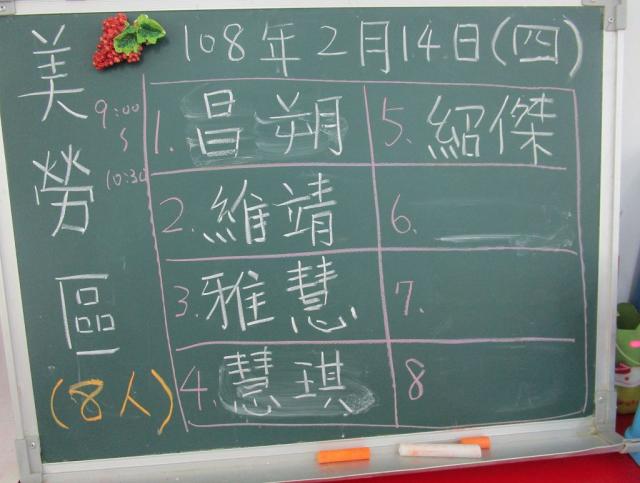 108年2月14日(四)
美勞區
9:00
~
10:30
(8人)
1. 昌朔
2. 維靖
3. 雅慧
4. 慧琪
5. 紹傑
6.
7.
8